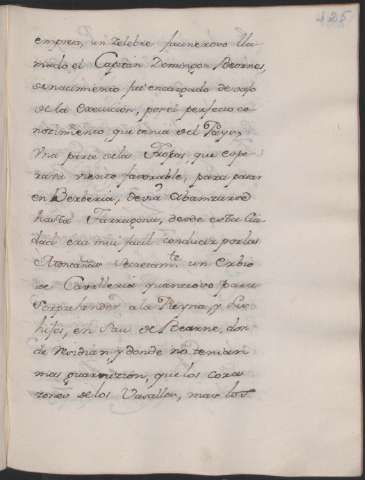 425
empresa, un Zelebre facineroso lla-
mado el Capitan Domingo Bearnes,
de nacimiento fue encargado de
de la Execucion, por el perfecto co-
nocimiento, que tenia del Pays,
Una parte de las Tropas, que espe-
rava viento favorable, para pasar
en Berberia, devia abanzarse
hasta Tarragona, desde esta Ciu-
dad era mui facil conducir por las
Montañas Secretamte un Cuerpo
de Cavalleria que para
Sorprehender a la Reyna, y sus
hijos, en Pau de Bearne, don-
de residian y donde no tenian
mas guarnicion, que los Cora-
zones de los Vasallos, mas los